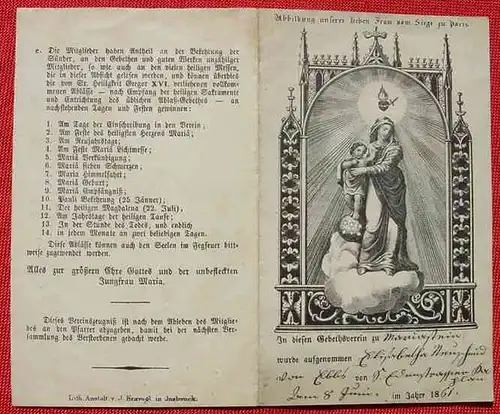 c. Die Mitglieder haben Antheil an der Bekehrung der
Sünder, an den Gebethen und guten Werken unzähliger
Mitglieder, so wie auch an den vielen heiligen Messen,
die in dieser Absicht gelesen werden, und können überdies
die von Sr. Heiligkeit Gregor XVI. verliehenen vollkom-
menen Ablässe — nach Empfang der heiligen Sakramente
und Entrichtung des üblichen Ablaß-Gebethes — an
nachstehenden Tagen und Festen gewinnen:
1. Am Tage der Einschreibung in den Verein;
2. Am Feste des heiligsten Herzens Mariä;
3. Am Neujahrstage;
4. Am Feste Mariä Lichtmesse;
5. Mariä Verkündigung;
6. Mariä sieben Schmerzen;
7. Mariä Himmelfahrt;
8. Mariä Geburt;
9. Mariä Empfängniß;
10. Pauli Bekehrung (25 Jänner);
11. Der heiligen Magdalena (22. Juli);
12. Am Jahrstage der heiligen Taufe;
13. In der Stunde des Todes, und endlich
14. in jedem Monate an zwei beliebigen Tagen.
Diese Ablässe können auch den Seelen im Fegfeuer bitt-
weise zugewendet werden.
Alles zur größern Ehre Gottes und der unbefleckten
Jungfrau Maria.
Dieses Vereinszeugniß ist nach dem Ableben des Mitglie-
des an den Pfarrer abzugeben, damit bei der nächsten Ver-
sammlung des Verstorbenen gedacht werde.
Lith. Anstalt v. J. in Insbruck.
Abbildung unserer lieben Frau vom Siege zu Paris
In diesen Gebethsverein zu Mariastein
wurde aufgenommen Elisabetha
von Ebbs von
den 8 Juni. im Jahr 1861.